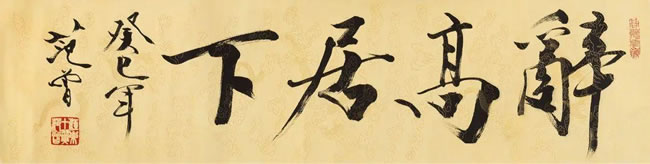 辭高居下
癸巳年
范曾